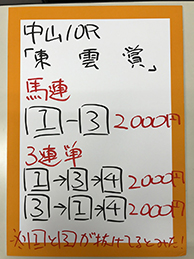 中山10R
「東雲賞」
馬連
1-3 2000円
3連単
1→3→4 2000円
3→1→4 2000円
※1と3が抜けてるとみた!